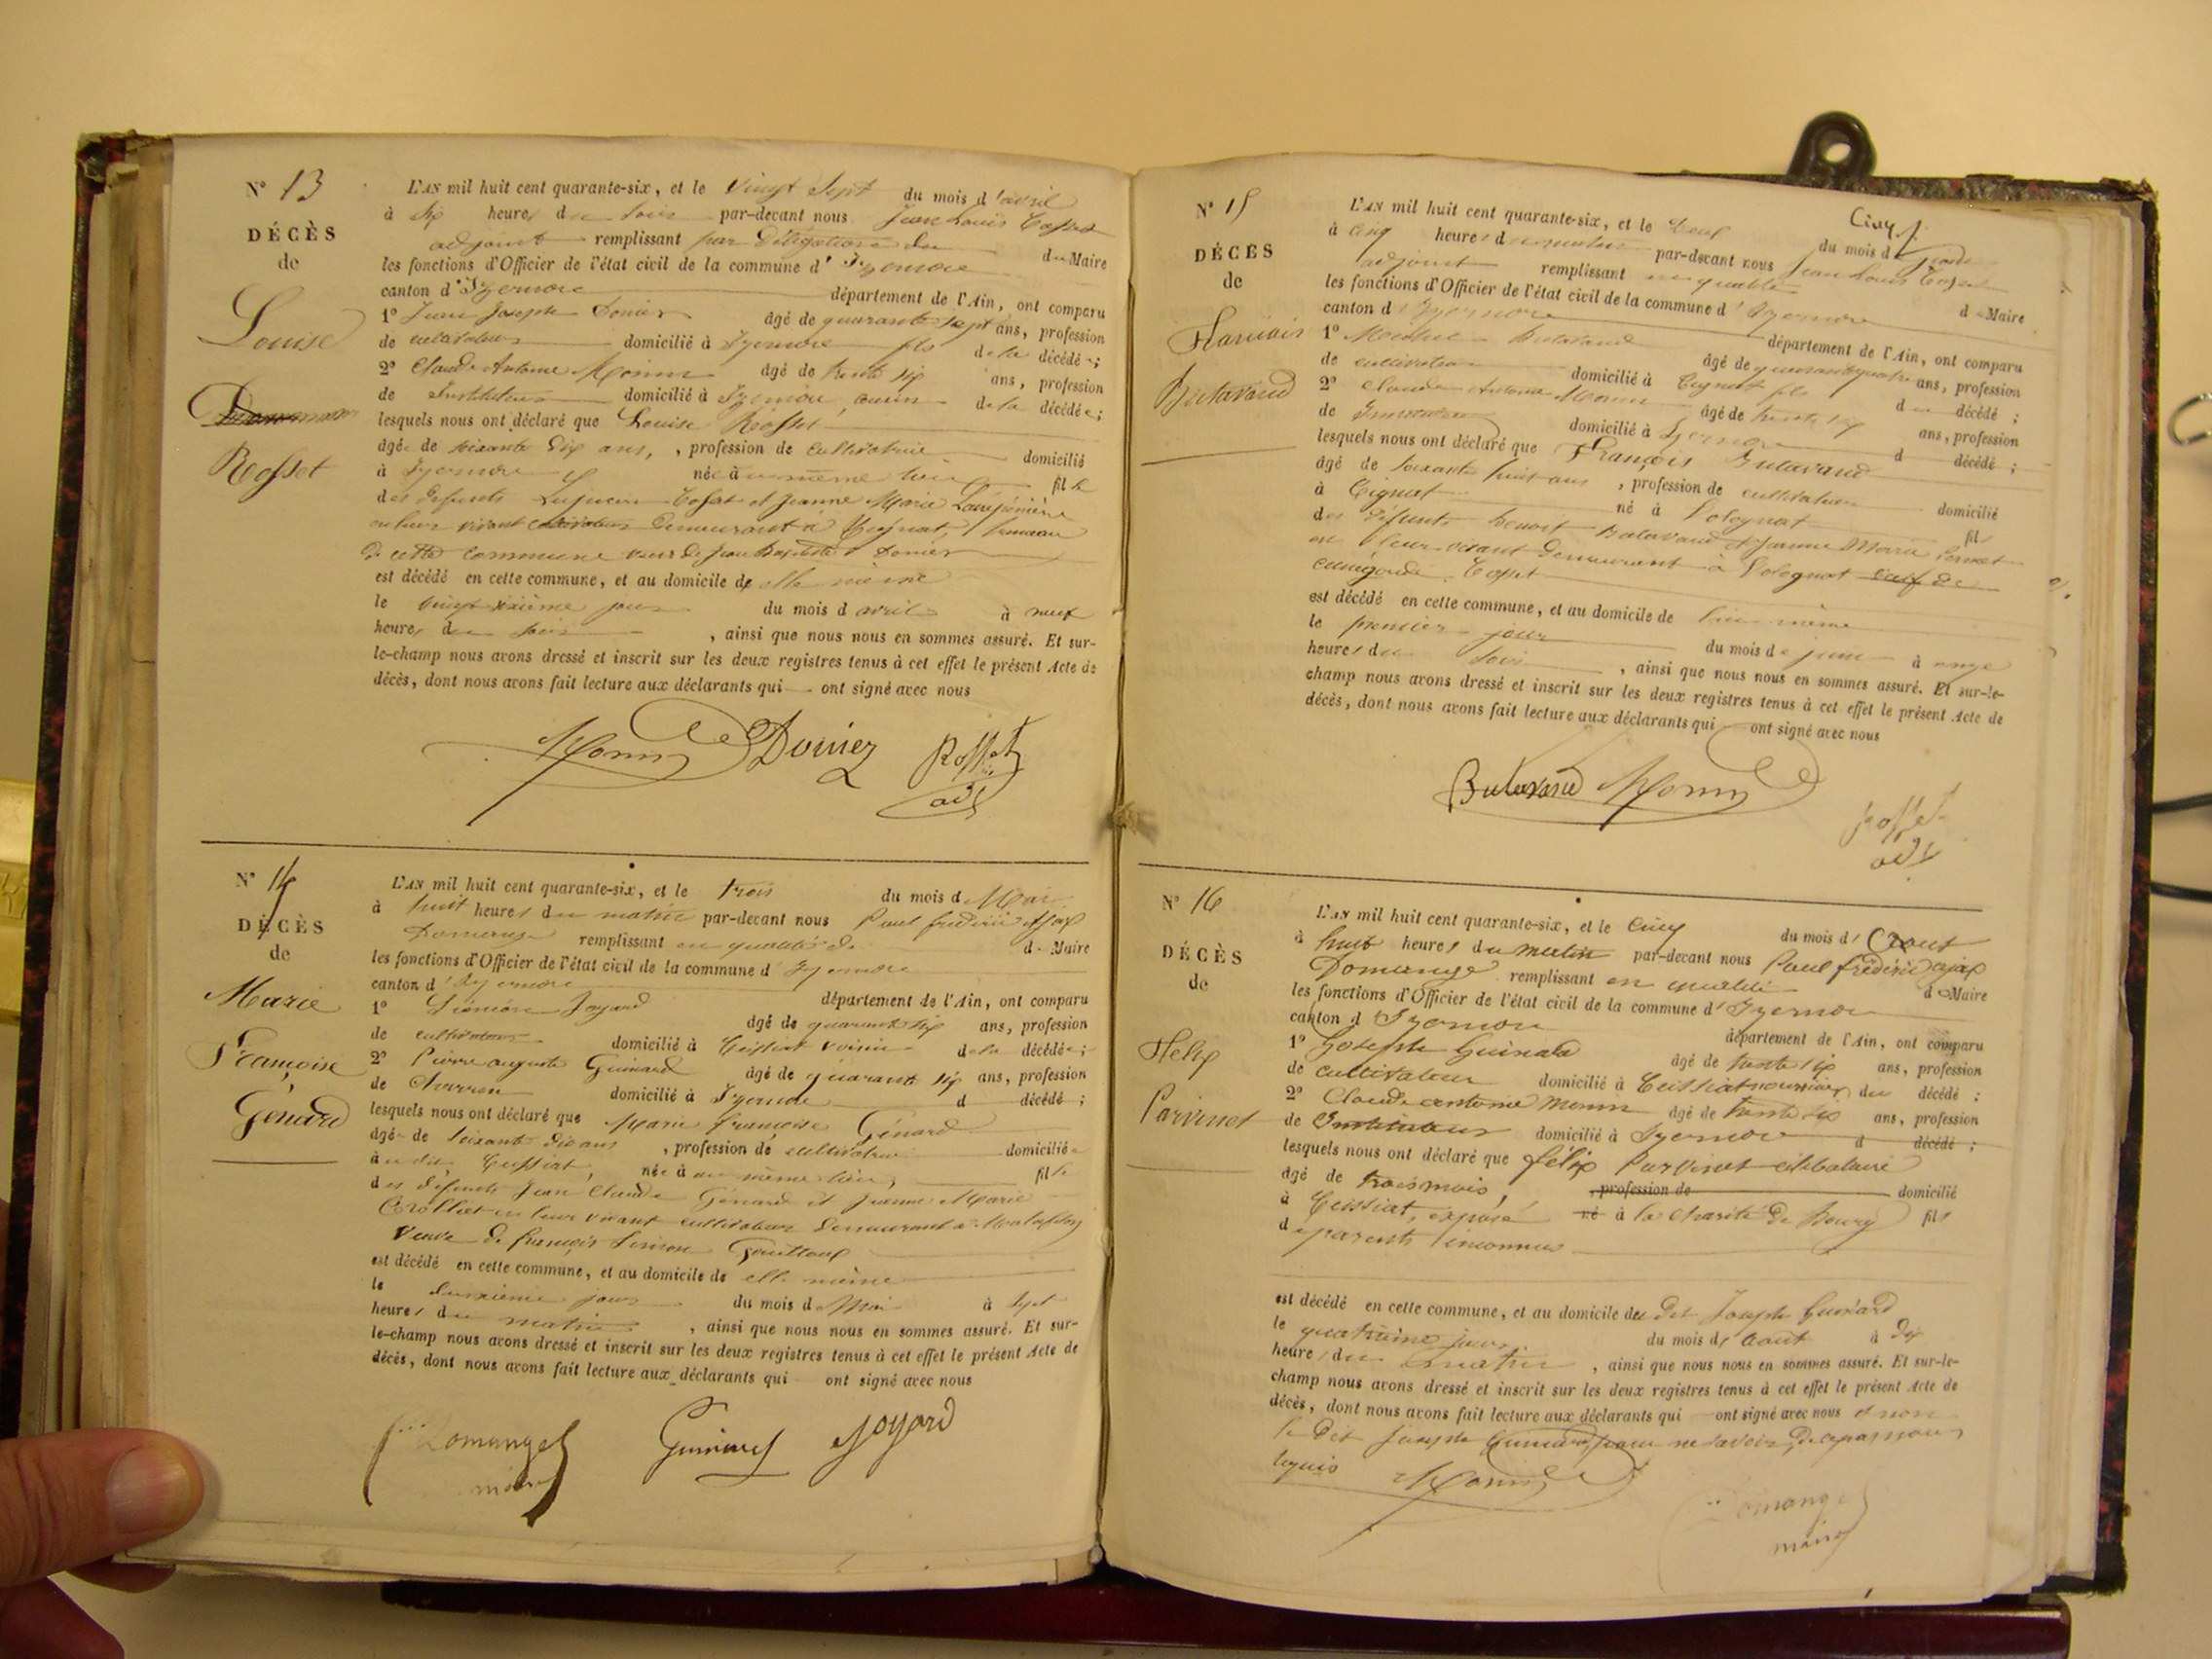 N° 13
DÉCÈS
de
Louise
Rosset
L'AN mil huit cent quarante-six, et le vingt sept du mois d'avril
à six heures du soir par-devant nous Jean Louis Rosset
adjoint remplissant par délégation du du Maire
les fonctions d'Officier de l'état civil de la commune d'Izernore
canton d'Izernore département de l'Ain, ont comparu
1° Jean Joseph Donier âgé de quarante sept ans, profession
de cultivateur domicilié à Izernore fils de la décédée;
2° Claude Antoine Monin âgé de trente six ans, profession
de Instituteur domicilié à Izernore, de la décédée;
lesquels nous ont déclaré que Louise Rosset
âgée de soixante dix ans, , profession de cultivatrice domicilié
à Izernore née à au même lieu fille
des défunts Rosset et Jeanne Marie
en leur vivant demeurant à hameau
de cette commune veuve de Jean Baptiste Donier
est décédé en cette commune, et au domicile de elle même
le vingt sixième jour du mois d avril à neuf
heures du soir , ainsi que nous nous en sommes assuré. Et sur-
le-champ nous avons dressé et inscrit sur les deux registres tenus à cet effet le présent Acte de
décès, dont nous avons fait lecture aux déclarants qui ont signé avec nous
Monin Donier Rosset
adj
N° 14
DÉCÈS
de
Marie
Françoise
Génard
L'AN mil huit cent quarante-six, et le trois du mois de Mai
à huit heures du matin par-devant nous Paul frédéric Ajax
Domange remplissant en qualité de de Maire
les fonctions d'Officier de l'état civil de la commune d'Izernore
canton d'Izernore département de l'Ain, ont comparu
1° Joyard âgé de quarante six ans, profession
de cultivateur domicilié à Ceissiat voisin de la décédée;
2° Pierre auguste Guinard âgé de quarante six ans, profession
de charron domicilié à Izernore d décédé ;
lesquels nous ont déclaré que Marie françoise Génard
âgée de soixante dix ans , profession de cultivatrice domiciliée
à au dit Ceissiat, née à au même lieu, fille
des défunts Jean Claude Génard et Jeanne Marie
en leur vivant cultivateurs demeurant à
veuve de françois
est décédé en cette commune, et au domicile de elle même
le deuxième jour du mois de Mai à sept
heures du matin , ainsi que nous nous en sommes assuré. Et sur-
le-champ nous avons dressé et inscrit sur les deux registres tenus à cet effet le présent Acte de
décès, dont nous avons fait lecture aux déclarants qui ont signé avec nous
Domange Guinard Joyard
maire
N° 15
DÉCÈS
de
François
Butavand
L'AN mil huit cent quarante-six, et le deux du mois de juin
à cinq heures du matin par-devant nous Jean Louis Rosset
adjoint remplissant en qualité d Maire
les fonctions d'Officier de l'état civil de la commune d'Izernore
canton d'Izernore département de l'Ain, ont comparu
1° Butavand âgé de quarante quatre ans, profession
de cultivateur domicilié à fils du décédé ;
2° Claude Antoine Monin âgé de trente six ans, profession
de Instituteur domicilié à Izernore d décédé ;
lesquels nous ont déclaré que François Butavand
âgé de soixante huit ans , profession de cultivateur domicilié
à né à Volognat fils
des défunts Benoit Butavand et Jeanne Marie
en leur vivant demeurant à Volognat veuf de
Cunégonde Rosset
est décédé en cette commune, et au domicile de lui même
le premier jour du mois de juin à onze
heures du soir , ainsi que nous nous en sommes assuré. Et sur-le-
champ nous avons dressé et inscrit sur les deux registres tenus à cet effet le présent Acte de
décès, dont nous avons fait lecture aux déclarants qui ont signé avec nous
Butavand Monin
Rosset
adj
N° 16
DÉCÈS
de
Felix
Parvinet
L'AN mil huit cent quarante-six, et le cinq du mois d'Aout
à huit heures du matin par-devant nous Paul frédéric ajax
Domange remplissant en qualité de Maire
les fonctions d'Officier de l'état civil de la commune d'Izernore
canton d'Izernore département de l'Ain, ont comparu
1° Joseph Guinard âgé de trente six ans, profession
de cultivateur domicilié à Ceissiat nourricier du décédé ;
2° Claude antoine Monin âgé de trente six ans, profession
de Instituteur domicilié à Izernore d décédé ;
lesquels nous ont déclaré que félix Parvinet célibataire
âgé de trois mois, , profession de domicilié
à Ceissiat, exposé né à la charité de Bourg fils
de parents inconnus
est décédé en cette commune, et au domicile du dit Joseph Guinard
le quatrième jour du mois d'aout à dix
heures du matin , ainsi que nous nous en sommes assuré. Et sur-le-
champ nous avons dressé et inscrit sur les deux registres tenus à cet effet le présent Acte de
décès, dont nous avons fait lecture aux déclarants qui ont signé avec nous et non
le dit Joseph Guinard pour ne savoir, de ce par nous
requis Monin Domange
maire